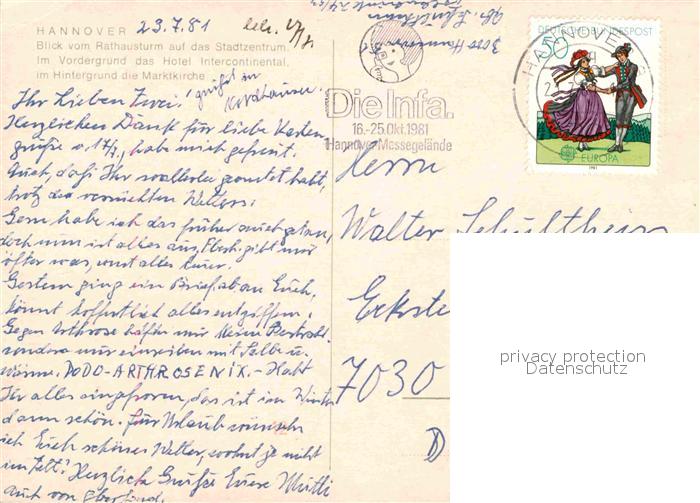 HANNOVER 23.7.81
Blick vom Rathausturm auf das Stadtzentrum.
Im Vordergrund das Hotel Intercontinental,
im Hintergrund die Marktkirche
Ihr Lieben Zwei!
Herzlichen Dank für liebe Karten-
grüße v. 17/7., habe mich gefreut.
Auch, daß Ihr wohl geerntet habt,
trotz des verrückten Wetters!
Gern habe ich das früher auch getan,
doch nun ist alles aus, Eberh. gibt mir
öfter was, sonst alles teuer.
Gestern ging ein Brief ab an Euch,
könnt hoffentlich alles entziffern.
Gegen Arthrose nur keine
sondern nur einreiben mit Salbe u.
Wärme. DODO-ARTHROSENIX. – Habt
Ihr alles eingefroren, das ist im Winter
dann schön. Für Urlaub wünsche
ich Euch schönes Wetter, wohnt je nicht
im Zelt? Herzliche Grüße Eure Mutti
auch von Eberhard
3000 Hannover
DEUTSCHE BUNDESPOST
50
HANNOVER
EUROPA
1981
Die Infa.
16.-25.Okt.1981
Hannover Messegelände
Herrn
Walter Schultheiss
7030
D
privacy protection
Datenschutz